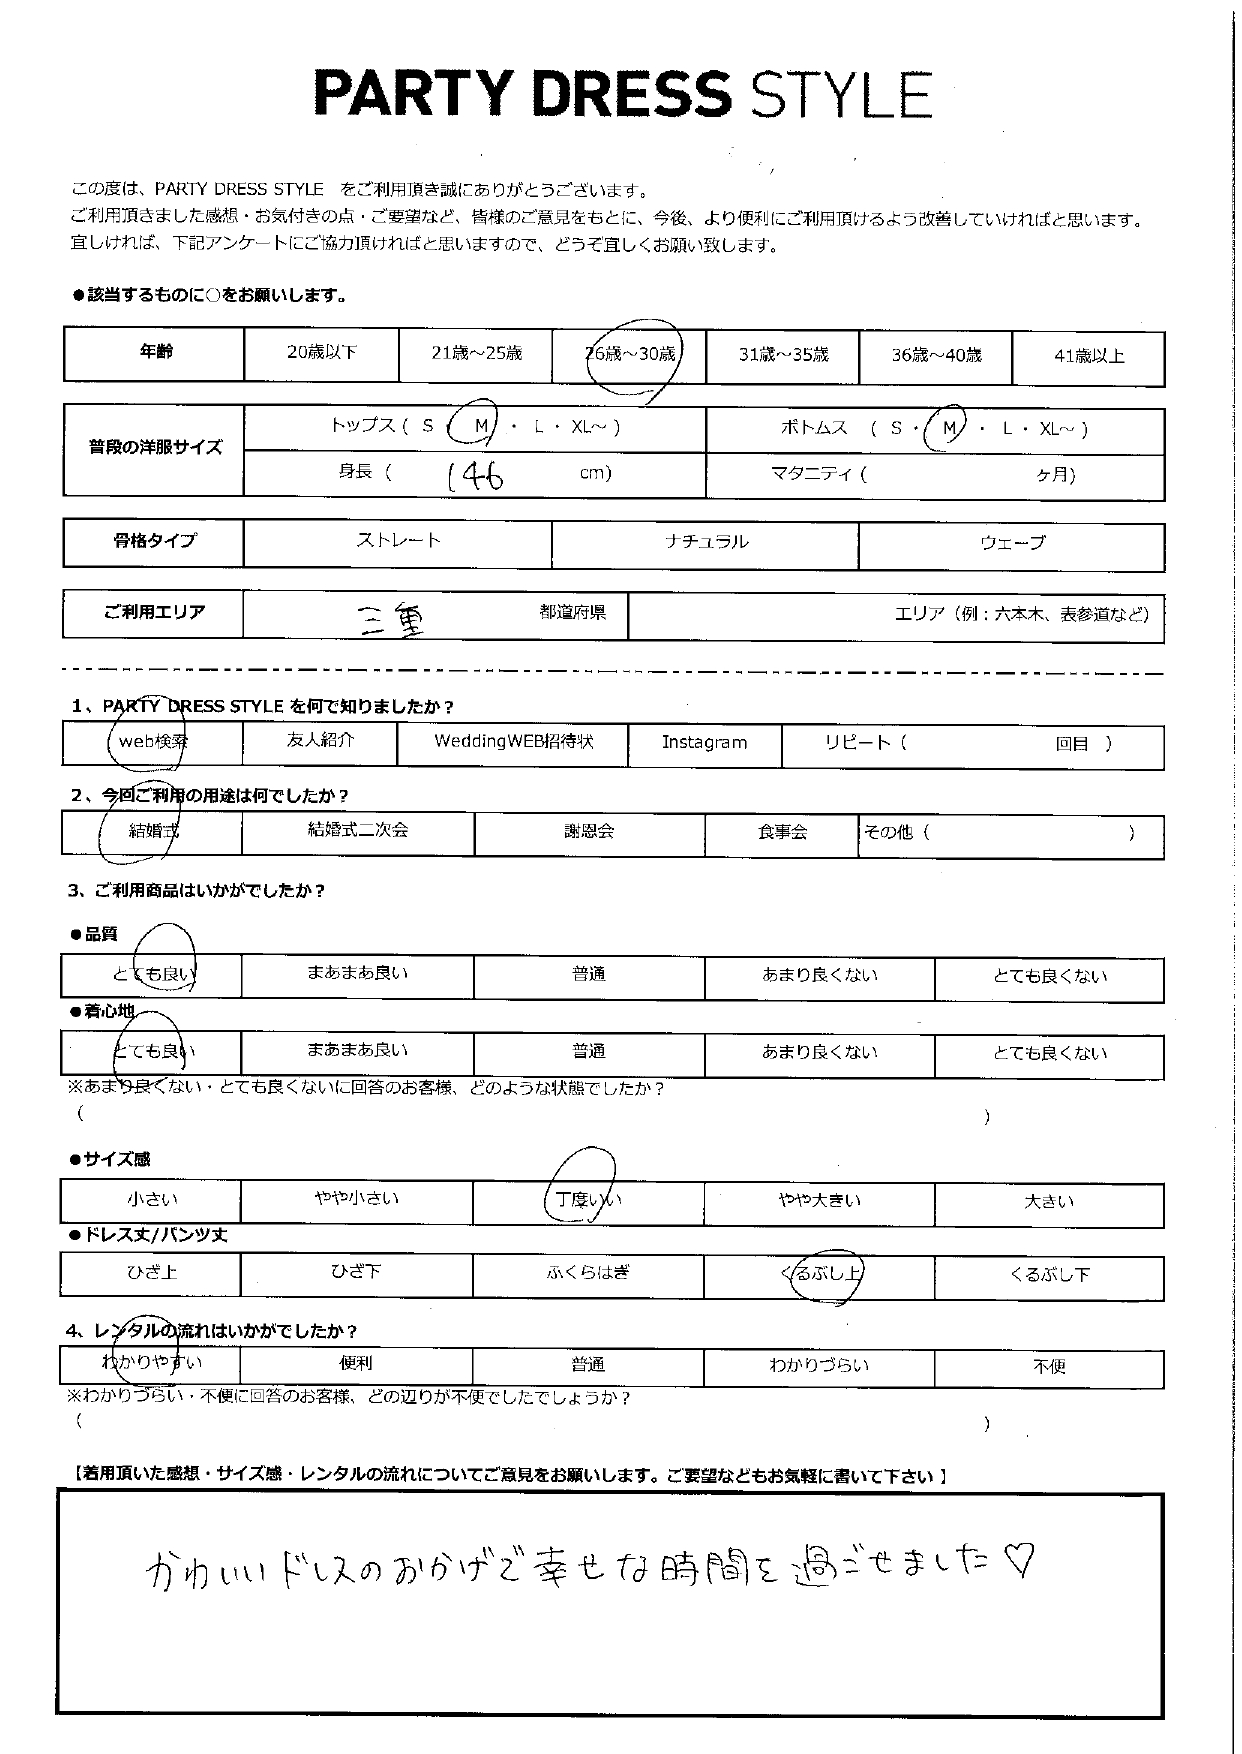 PARTY DRESS STYLE
この度は、PARTY DRESS STYLE をご利用頂き誠にありがとうございます。
ご利用頂きました感想・お気付きの点・ご要望など、皆様のご意見をもとに、今後、より便利にご利用頂けるよう改善していければと思います。
宜しければ、下記アンケートにご協力頂ければと思いますので、どうぞ宜しくお願い致します。
●該当するものに○をお願いします。
年齢 20歳以下 21歳～25歳 26歳～30歳 31歳～35歳 36歳～40歳 41歳以上
普段の洋服サイズ トップス ( S ・ M ・ L ・ XL～ ) ボトムス ( S ・ M ・ L ・ XL～ )
身長 ( 146 cm) マタニティ ( ヶ月)
骨格タイプ ストレート ナチュラル ウェーブ
ご利用エリア 三重 都道府県 エリア（例：六本木、表参道など）
1、PARTY DRESS STYLE を何で知りましたか？
web検索 友人紹介 WeddingWEB招待状 Instagram リピート ( 回目 )
2、今回ご利用の用途は何でしたか？
結婚式 結婚式二次会 謝恩会 食事会 その他 ( )
3、ご利用商品はいかがでしたか？
●品質
とても良い まあまあ良い 普通 あまり良くない とても良くない
●着心地
とても良い まあまあ良い 普通 あまり良くない とても良くない
※あまり良くない・とても良くないに回答のお客様、どのような状態でしたか？
( )
●サイズ感
小さい やや小さい 丁度いい やや大きい 大きい
●ドレス丈/パンツ丈
ひざ上 ひざ下 ふくらはぎ くるぶし上 くるぶし下
4、レンタルの流れはいかがでしたか？
わかりやすい 便利 普通 わかりづらい 不便
※わかりづらい・不便に回答のお客様、どの辺りが不便でしたでしょうか？
( )
【着用頂いた感想・サイズ感・レンタルの流れについてご意見をお願いします。ご要望などもお気軽に書いて下さい】
かわいいドレスのおかげで幸せな時間を過ごせました♡